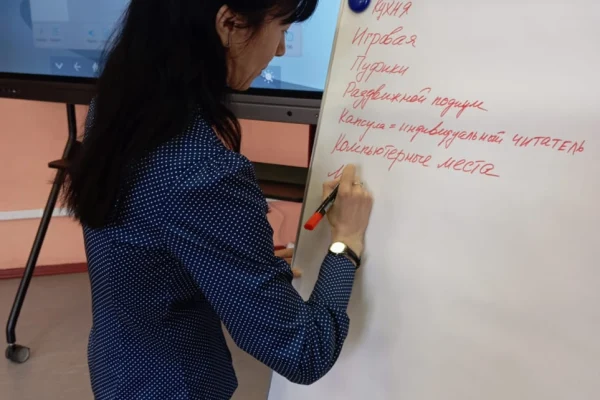 Кухня
Игровая
Пуфики
Раздвижной подиум
Капсула = индивидуальной читатель
Компьютерные места